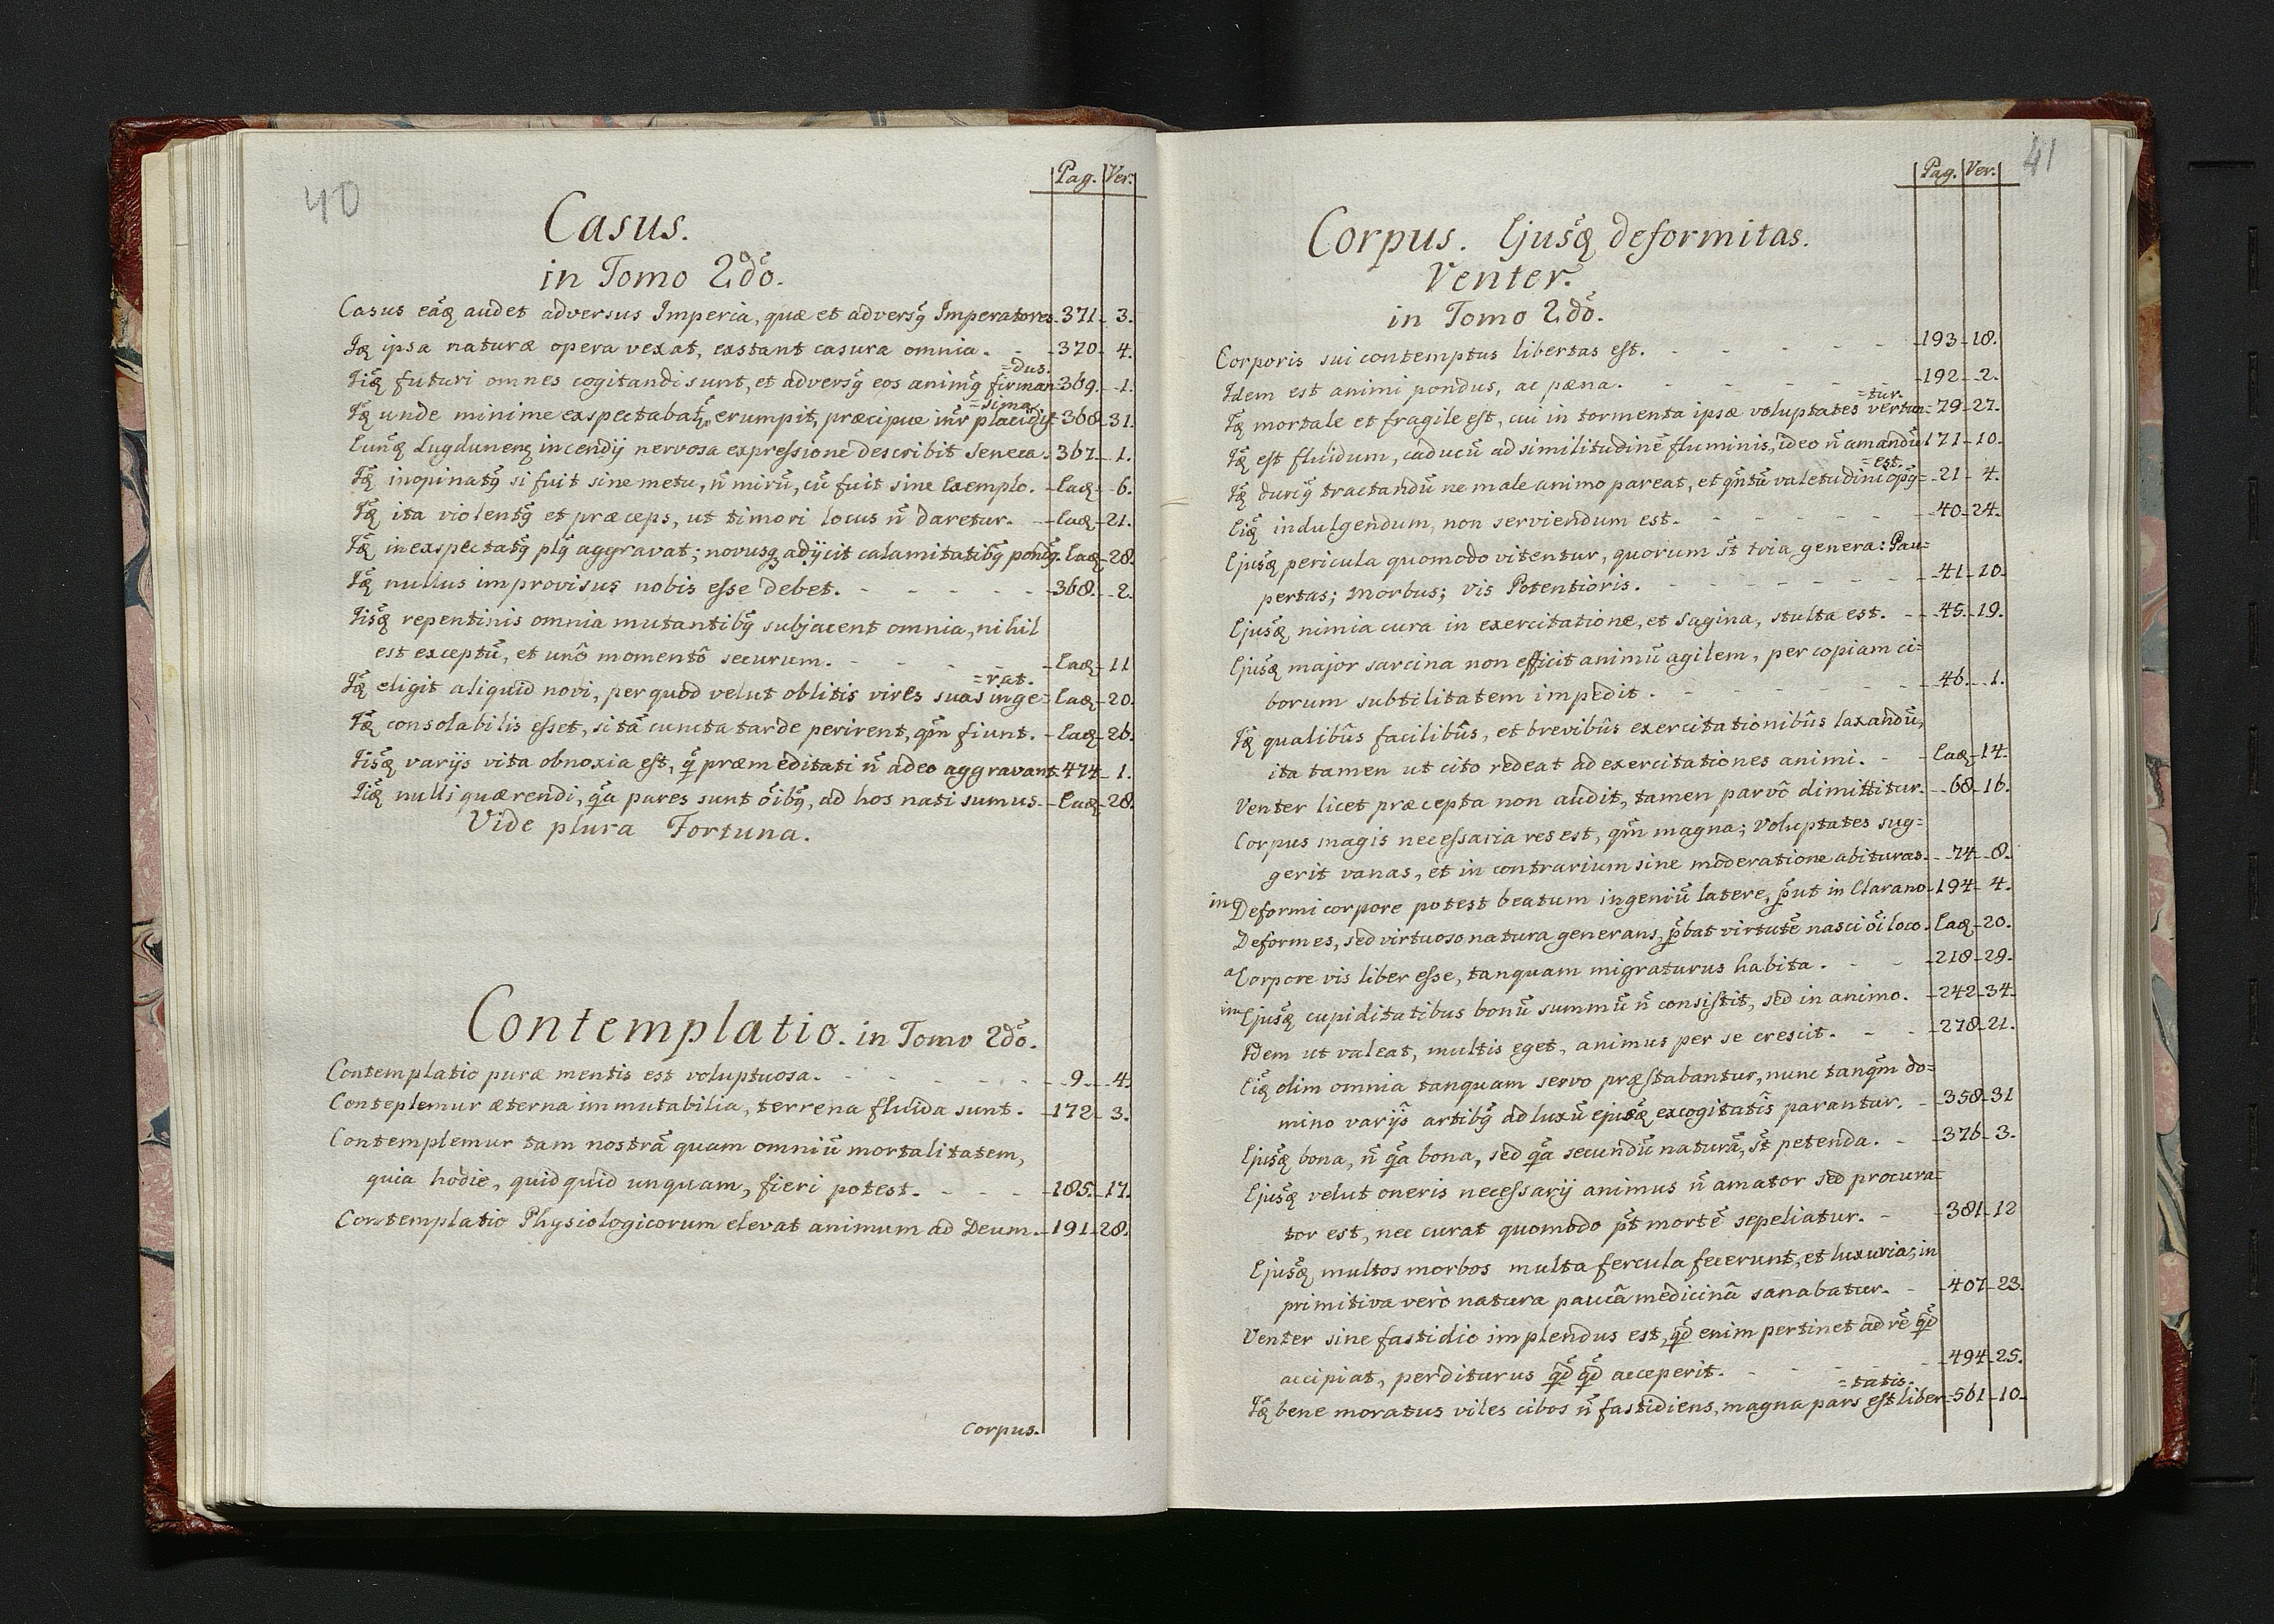 40
Pag. Ver.
Casus.
in Tomo 2dõ.
Casus eãq audet adversus Imperia, quæ et adversq̃ Imperatores. 371. 3.
Iq̃ ipsa naturæ opera vexat, exstant casura omnia. - - 370. 4.
Iiq̃ futuri omnes cogitandi sunt, et adversq̃ eos animq̃ firman=dus. 369. 1.
Iq̃ unde minime exspectabat, erumpit, præcipue inr̃ placidis=sima. 368. 31.
Eunq̃ Lugdunenq incendij nervosa expressione describit Seneca. 367. 1.
Iq̃ inopinatq̃ si fuit sine metu, ñ mirũ, cũ fuit sine Exemplo. - Eaq - 6.
Iq̃ ita violentq̃ et præceps, ut timori locus ñ daretur. - Eaq - 21.
Iq̃ inexspectatq̃ plq̃ aggravat; novusq adijcit calamitatibq̃ pondq̃. Eaq - 28.
Iq̃ nullus improvisus nobis esse debet. - - - - - 368. 2.
Iisq̃ repentinis omnia mutantibq̃ subjacent omnia, nihil
est exceptũ, et unô momentô securum. - - - - - Eaq - 11
Iq̃ eligit aliquid novi, per quod velut oblitis vires suas inge=rat. - Eaq - 20.
Iq̃ consolabilis esset, si tã cuncta tarde perirent, qm̃ fiunt. - Eaq - 26.
Iisq̃ varijs vita obnoxia est, q̃ præmeditati ñ adeo aggravant. 474. 1.
Iiq̃ nulli quærendi, q̃a pares sunt õibq̃, ad hos nati sumus. - Eaq - 28.
Vide plura Fortuna.
Contemplatio. in Tomo 2dõ.
Contemplatio puræ mentis est voluptuosa. - - - - - - 9. 4.
Conteplemur æterna immutabilia, terrena fluida sunt. - 172. 3.
Contemplemur tam nostrã quam omniũ mortalitatem,
quia hodie, quidquid unquam, fieri potest. - - - 185. 17.
Contemplatio Physiologicorum elevat animum ad Deum. - 191. 28.
Corpus.
41
Pag. Ver.
Corpus. Ejusq̃ deformitas.
Venter.
in Tomo 2dõ.
Corporis sui contemptus libertas est. - - - - - 193 - 18.
Idem est animi pondus, ac pæna. - - - - - 192 - 2.
Iq̃ mortale et fragile est, cui in tormenta ipsæ voluptates vertun=tur. 79 - 27.
Iq̃ est fluidum, caducũ ad similitudinẽ fluminis, ideo ñ amandũ 171 - 10.
Iq̃ duriq̃ tractandũ ne male animo pareat, et qñtũ valetudini opq̃ =est. 21 - 4.
Eiq̃ indulgendum, non serviendum est. - - - - - 40 - 24.
Ejusq̃ pericula quomodo vitentur, quorum st̃ tria genera: Pau=
pertas; Morbus; vis Potentioris. - - - - - - - 41 - 10.
Ejusq̃ nimia cura in exercitatione, et sagina, stulta est. - 45. 19.
Ejusq̃ major sarcina non efficit animũ agilem, per copiam ci=
borum subtilitatem impedit. - - - - - - - 46. 1.
Iq̃ qualibûs facilibûs, et brevibûs exercitationibûs laxandũ,
ita tamen ut cito redeat ad exercitationes animi. - - Eaq - 14.
Venter licet præcepta non audit, tamen parvô dimittitur. - 68 - 16.
Corpus magis necessaria res est, qm̃ magna; Voluptates sug=
gerit vanas, et in contrarium sine moderatione abituras. - 74 - 8.
in Deformi corpore potest beatum ingeniũ latere, p̃ut in Clarano. 194 - 4.
Deformes, sed virtuoso natura generans, p̃bat virtutẽ nasci õi loco. Eaq - 20.
a Corpore vis liber esse, tanquam migraturus habita. - - 218 - 29.
in Ejusq̃ cupiditatibus bonũ summũ ñ consistit, sed in animo. - 242 - 34.
Idem ut valeat, multis eget, animus per se crescit. - - 278 - 21.
Eiq̃ olim omnia tanquam servo præstabantur, nunc tanqm̃ do=
mino varijs artibq̃ ad luxũ ejusq̃ excogitatîs parantur. - 358 - 31
Ejusq̃ bona, ñ q̃a bona, sed q̃a secundũ naturã, st̃ petenda. - 376 - 3.
Ejusq̃ velut oneris necessarij animus ñ amator sed procura=
tor est, nec curat quomodo p̃t mortẽ sepeliatur. - 381 - 12
Ejusq̃ multos morbos multa fercula fecerunt, et luxuria; in
primitiva verò natura paucâ medicinâ sanabatur. - 407 - 23.
Venter sine fastidio implendus est, qd̃ enim pertinet ad rẽ qd̃
accipiat, perditurus qd̃ qd̃ acceperit. - - - - - 494 - 25.
Iq̃ bene moratus viles cibos ñ fastidiens, magna pars est liber=tatis. 561 - 10.